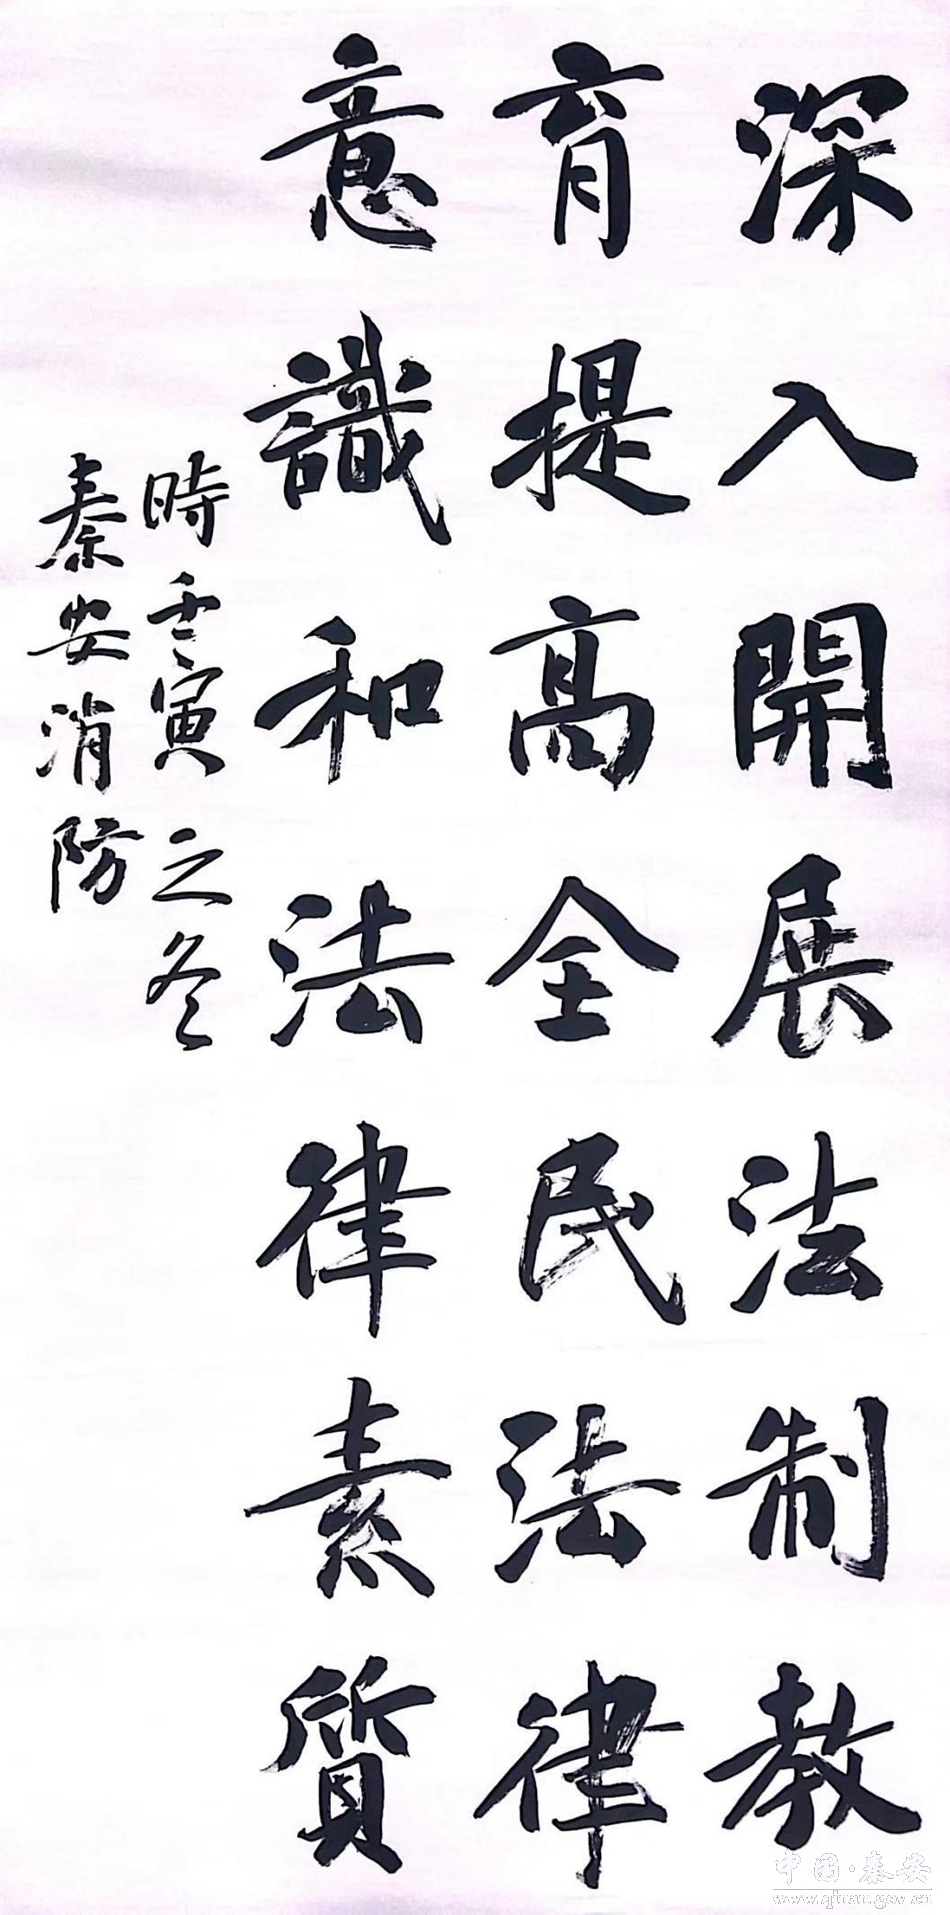 深入開展法制教
育提高全民法律
意識和法律素質
時壬寅之冬
秦安消防
中国·秦安
www.qinan.gov.cn